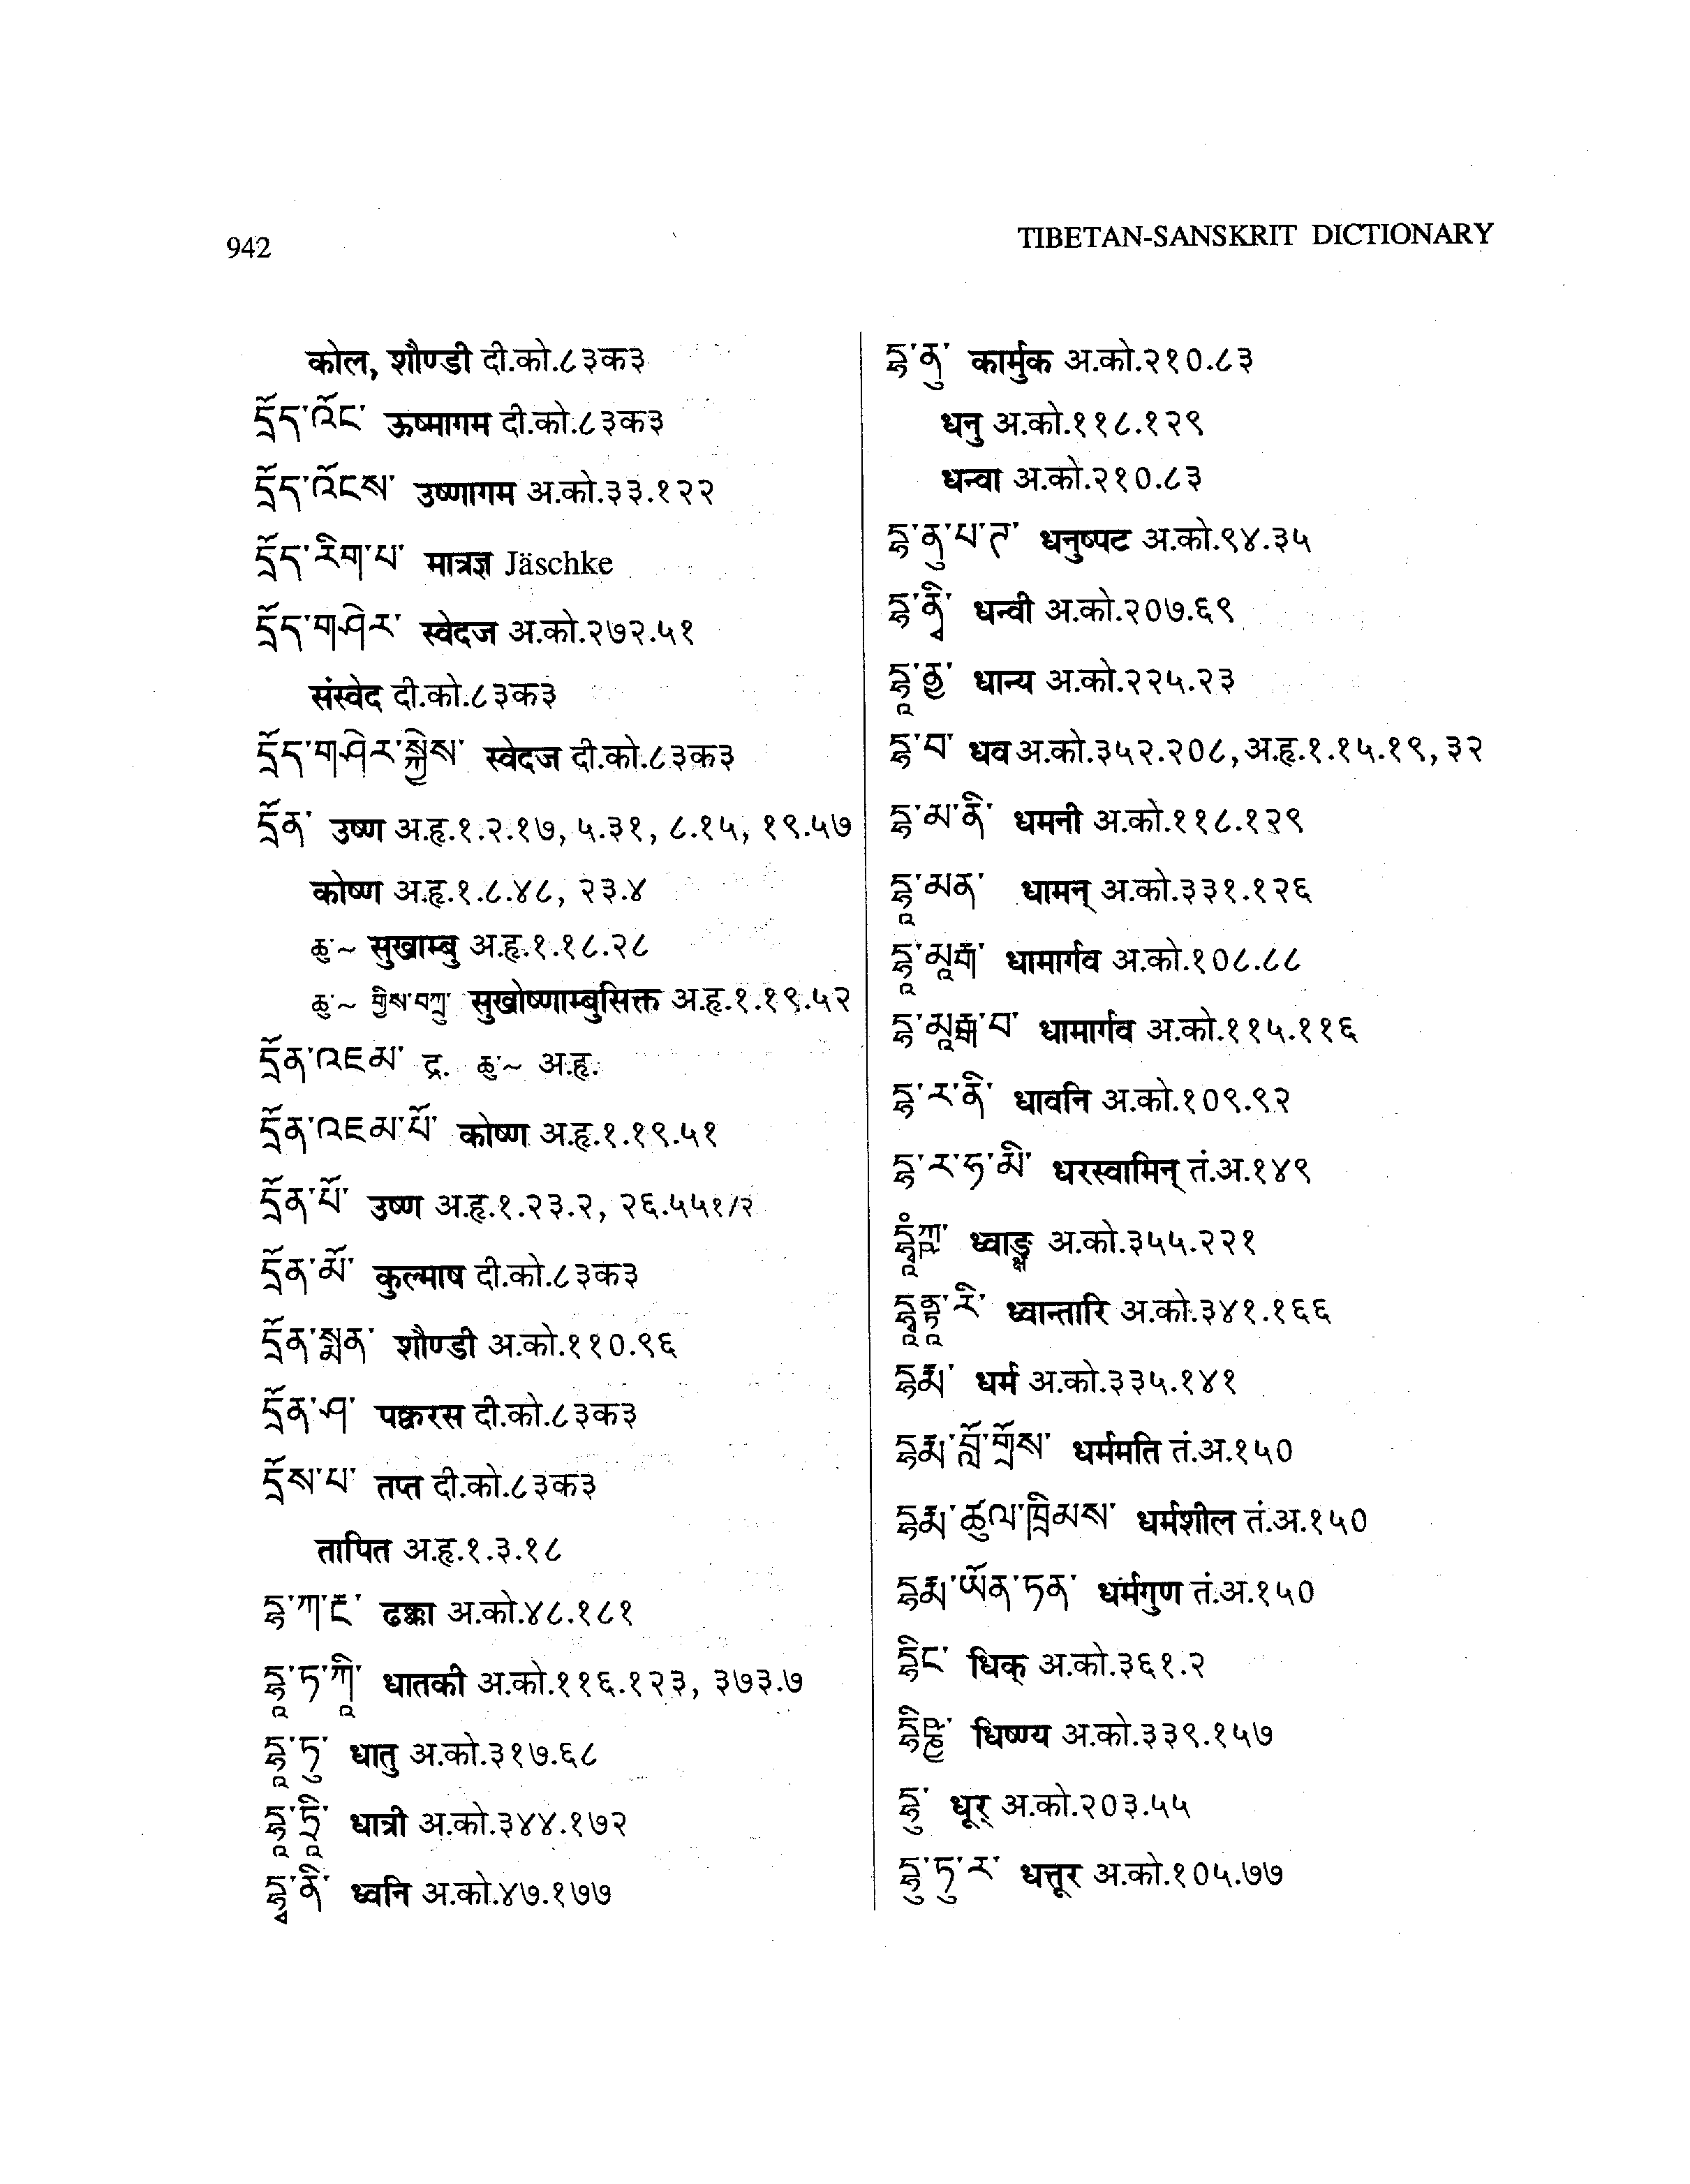 942
TIBETAN-SANSKRIT DICTIONARY
कोल, शौण्डी दी.को.८३क३
དྲོད་འོང་ ऊष्मागम दी.को.८३क३
དྲོད་འོངས་ उष्णागम अ.को.३३.१२२
དྲོད་རིག་པ་ मात्रज्ञ Jäschke
དྲོད་གཤེར་ स्वेदज अ.को.२७२.५१
संस्वेद दी.को.८३क३
དྲོད་གཤེར་སྐྱེས་ स्वेदज दी.को.८३क३
དྲོན་ उष्ण अ.हृ.१.२.१७, ५.३१, ८.१५, १९.५७
कोष्ण अ.हृ.१.८.४८, २३.४
ཆུ་~ सुखाम्बु अ.हृ.१.१८.२८
ཆུ་~ གྱིས་བཀྲུ་ सुखोष्णाम्बुसिक्त अ.हृ.१.१९.५२
དྲོན་འཇམ་ द्र. ཆུ་~ अ.हृ.
དྲོན་འཇམ་པོ་ कोष्ण अ.हृ.१.१९.५१
དྲོན་པོ་ उष्ण अ.हृ.१.२३.२, २६.५५१/२
དྲོན་མོ་ कुल्माष दी.को.८३क३
དྲོན་སྨན་ शौण्डी अ.को.११०.९६
དྲོན་ཤ་ पक्वरस दी.को.८३क३
དྲོས་པ་ तप्त दी.को.८३क३
तापित अ.हृ.१.३.१८
དྷ་ཀ་ང་ ढक्का अ.को.४८.१८१
དྷཱ་ཏ་ཀཱི་ धातकी अ.को.११६.१२३, ३७३.७
དྷཱ་ཏུ་ धातु अ.को.३१७.६८
དྷཱ་ཏྲཱི་ धात्री अ.को.३४४.१७२
དྷྭ་ནི་ ध्वनि अ.को.४७.१७७
དྷ་ནུ་ कार्मुक अ.को.२१०.८३
धनु अ.को.११८.१२९
धन्वा अ.को.२१०.८३
དྷ་ནུ་པ་ཊ་ धनुष्पट अ.को.९४.३५
དྷ་ནྭི་ धन्वी अ.को.२०७.६९
དྷཱ་ནྱ་ धान्य अ.को.२२५.२३
དྷ་བ་ धव अ.को.३५२.२०८, अ.हृ.१.१५.१९, ३२
དྷ་མ་ནི་ धमनी अ.को.११८.१२९
དྷཱ་མན་ धामन् अ.को.३३१.१२६
དྷཱ་མཱག་ धामार्गव अ.को.१०८.८८
དྷ་མཱརྒ་བ་ धामार्गव अ.को.११५.११६
དྷ་ར་ནི་ धावनि अ.को.१०९.९२
དྷ་ར་ཧ་མི་ धरस्वामिन् तं.अ.१४९
དྷྭཱཾཀྵ་ ध्वाङ्क्ष अ.को.३५५.२२१
དྷྭཱནྟཱ་རི་ ध्वान्तारि अ.को.३४१.१६६
དྷརྨ་ धर्म अ.को.३३५.१४१
དྷརྨ་བློ་གྲོས་ धर्ममति तं.अ.१५०
དྷརྨ་ཚུལ་ཁྲིམས་ धर्मशील तं.अ.१५०
དྷརྨ་ཡོན་ཏན་ धर्मगुण तं.अ.१५०
དྷིང་ धिक् अ.को.३६१.२
དྷིཥྞྱ་ धिष्ण्य अ.को.३३९.१५७
དྷུ་ धूर् अ.को.२०३.५५
དྷུ་ཏུ་ར་ धत्तूर अ.को.१०५.७७